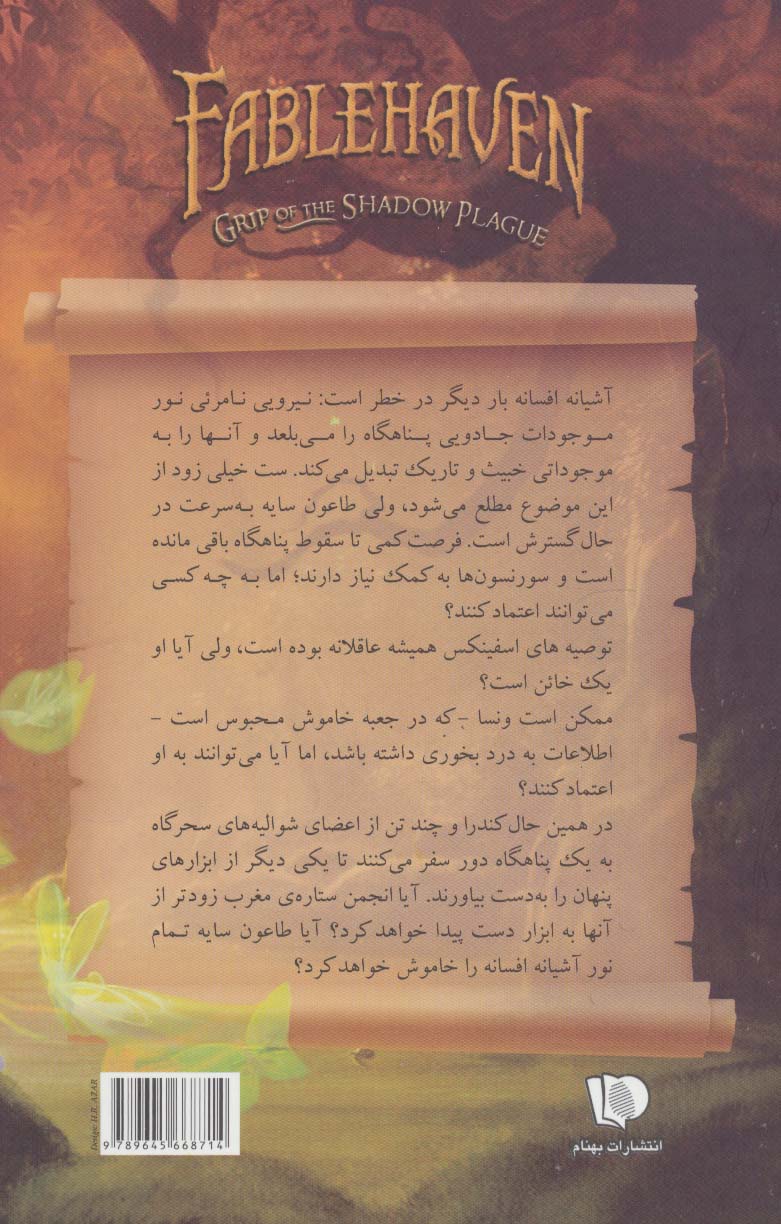 FABLEHAVEN
GRIP OF THE SHADOW PLAGUE
آشیانه افسانه بار دیگر در خطر است: نیرویی نامرئی نور
موجودات جادویی پناهگاه را می‌بلعد و آنها را به
موجوداتی خبیث و تاریک تبدیل می‌کند. ست خیلی زود از
این موضوع مطلع می‌شود، ولی طاعون سایه به‌سرعت در
حال گسترش است. فرصت کمی تا سقوط پناهگاه باقی مانده
است و سورنسون‌ها به کمک نیاز دارند؛ اما به چه کسی
می‌توانند اعتماد کنند؟
توصیه های اسفینکس همیشه عاقلانه بوده است، ولی آیا او
یک خائن است؟
ممکن است ونسا - که در جعبه خاموش محبوس است -
اطلاعات به درد بخوری داشته باشد، اما آیا می‌توانند به او
اعتماد کنند؟
در همین حال کندرا و چند تن از اعضای شوالیه‌های سحرگاه
به یک پناهگاه دور سفر می‌کنند تا یکی دیگر از ابزارهای
پنهان را به‌دست بیاورند. آیا انجمن ستاره‌ی مغرب زودتر از
آنها به ابزار دست پیدا خواهد کرد؟ آیا طاعون سایه تمام
نور آشیانه افسانه را خاموش خواهد کرد؟
Design: H.R. AZAR
9 789645 668714
انتشارات بهنام